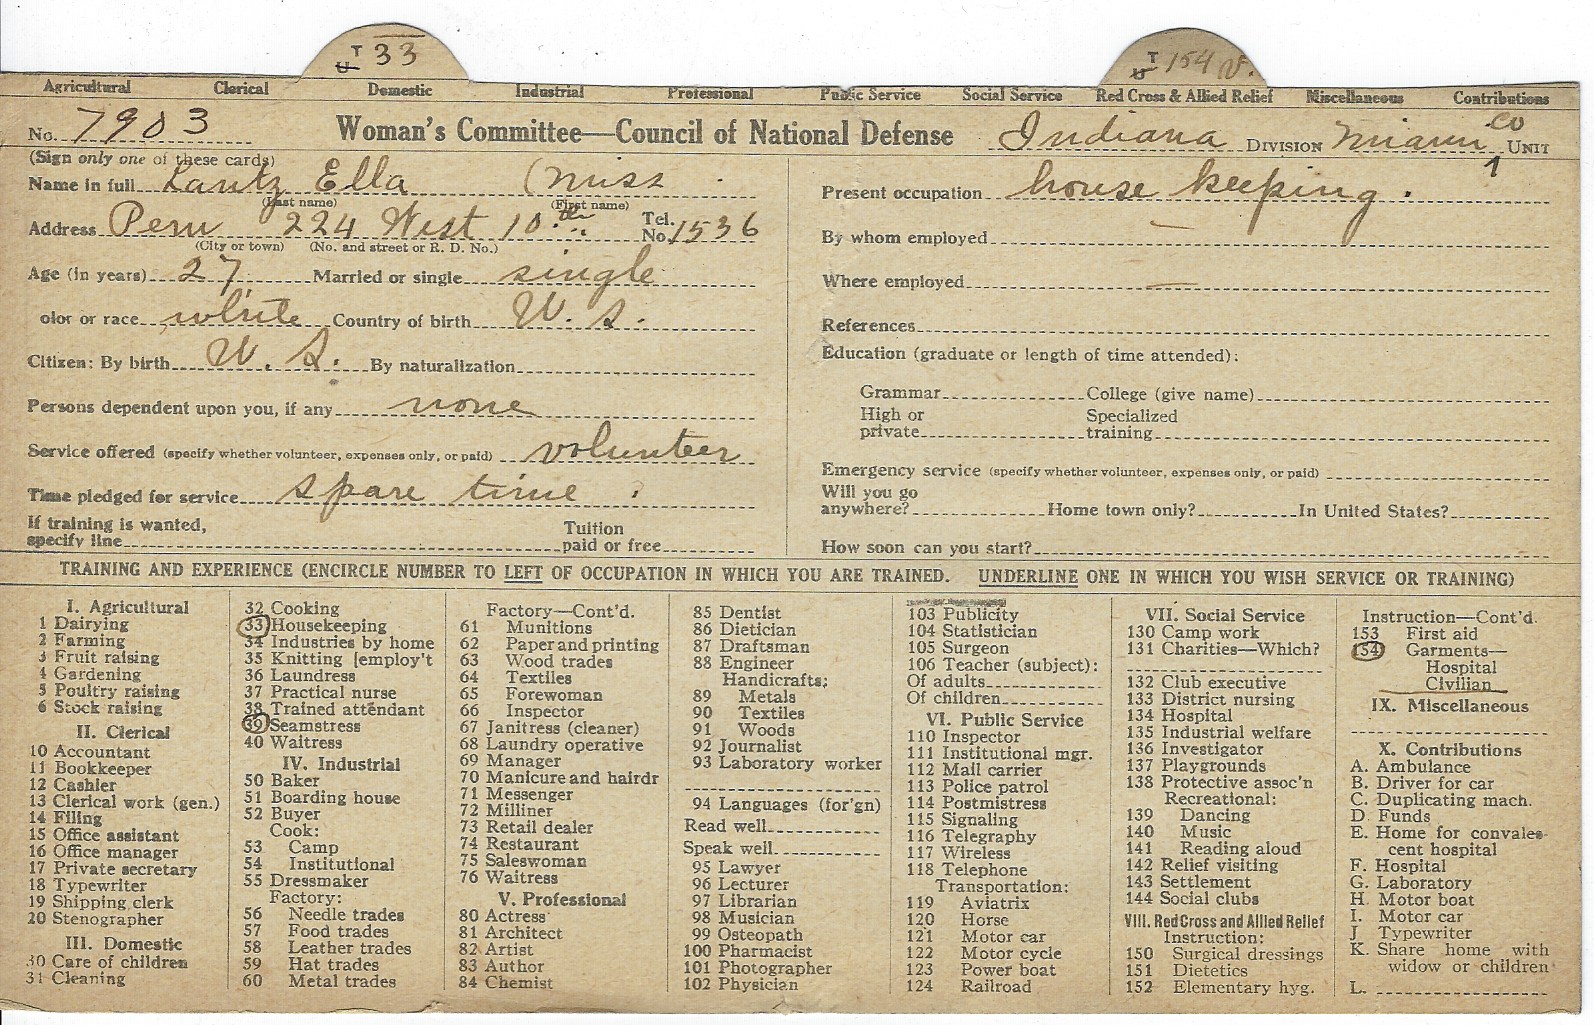 T U 33
T U 154 V.
Agricultural Clerical Domestic Industrial Professional Public Service Social Service Red Cross & Allied Relief Miscellaneous Contributions
No. 7903 Woman's Committee—Council of National Defense Indiana DIVISION Miami Co UNIT
1
(Sign only one of these cards)
Name in full Lantz Ella (Miss
(Last name) (First name)
Address Peru 224 West 10th Tel. No. 1536
(City or town) (No. and street or R. D. No.)
Age (in years) 27 Married or single single
olor or race white Country of birth U. S.
Citizen: By birth U. S. By naturalization
Persons dependent upon you, if any none
Service offered (specify whether volunteer, expenses only, or paid) volunteer
Time pledged for service spare time
If training is wanted,
specify line
Tuition
paid or free
Present occupation house keeping.
By whom employed —
Where employed —
References
Education (graduate or length of time attended):
Grammar College (give name)
High or private Specialized training
Emergency service (specify whether volunteer, expenses only, or paid)
Will you go
anywhere? Home town only? In United States?
How soon can you start?
TRAINING AND EXPERIENCE (ENCIRCLE NUMBER TO LEFT OF OCCUPATION IN WHICH YOU ARE TRAINED. UNDERLINE ONE IN WHICH YOU WISH SERVICE OR TRAINING)
I. Agricultural
1 Dairying
2 Farming
3 Fruit raising
4 Gardening
5 Poultry raising
6 Stock raising
II. Clerical
10 Accountant
11 Bookkeeper
12 Cashier
13 Clerical work (gen.)
14 Filing
15 Office assistant
16 Office manager
17 Private secretary
18 Typewriter
19 Shipping clerk
20 Stenographer
III. Domestic
30 Care of children
31 Cleaning
32 Cooking
33 Housekeeping
34 Industries by home
35 Knitting [employ't
36 Laundress
37 Practical nurse
38 Trained attendant
39 Seamstress
40 Waitress
IV. Industrial
50 Baker
51 Boarding house
52 Buyer
Cook:
53 Camp
54 Institutional
55 Dressmaker
Factory:
56 Needle trades
57 Food trades
58 Leather trades
59 Hat trades
60 Metal trades
Factory—Cont'd.
61 Munitions
62 Paper and printing
63 Wood trades
64 Textiles
65 Forewoman
66 Inspector
67 Janitress (cleaner)
68 Laundry operative
69 Manager
70 Manicure and hairdr
71 Messenger
72 Milliner
73 Retail dealer
74 Restaurant
75 Saleswoman
76 Waitress
V. Professional
80 Actress
81 Architect
82 Artist
83 Author
84 Chemist
85 Dentist
86 Dietician
87 Draftsman
88 Engineer
Handicrafts:
89 Metals
90 Textiles
91 Woods
92 Journalist
93 Laboratory worker
94 Languages (for'gn)
Read well
Speak well
95 Lawyer
96 Lecturer
97 Librarian
98 Musician
99 Osteopath
100 Pharmacist
101 Photographer
102 Physician
103 Publicity
104 Statistician
105 Surgeon
106 Teacher (subject):
Of adults
Of children
VI. Public Service
110 Inspector
111 Institutional mgr.
112 Mail carrier
113 Police patrol
114 Postmistress
115 Signaling
116 Telegraphy
117 Wireless
118 Telephone
Transportation:
119 Aviatrix
120 Horse
121 Motor car
122 Motor cycle
123 Power boat
124 Railroad
VII. Social Service
130 Camp work
131 Charities—Which?
132 Club executive
133 District nursing
134 Hospital
135 Industrial welfare
136 Investigator
137 Playgrounds
138 Protective assoc'n
Recreational:
139 Dancing
140 Music
141 Reading aloud
142 Relief visiting
143 Settlement
144 Social clubs
VIII. Red Cross and Allied Relief
Instruction:
150 Surgical dressings
151 Dietetics
152 Elementary hyg.
Instruction—Cont'd.
153 First aid
154 Garments—
Hospital
Civilian
IX. Miscellaneous
X. Contributions
A. Ambulance
B. Driver for car
C. Duplicating mach.
D. Funds
E. Home for convales-
cent hospital
F. Hospital
G. Laboratory
H. Motor boat
I. Motor car
J Typewriter
K. Share home with
widow or children
L.